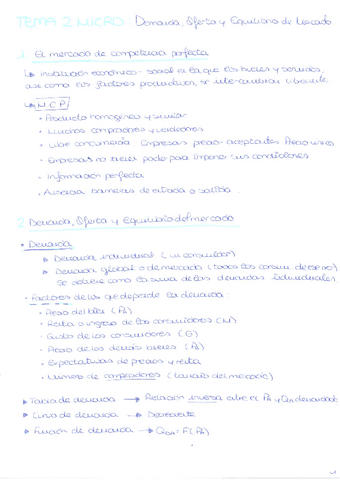 TEMA 2 MICRO: Demanda, Oferta y Equilibrio de Mercado
1. El mercado de competencia perfecta
↳ Institución económico-social en la que los bienes y servicios,
así como los factores productivos, se intercambian libremente.
↳ M.C.P.
• Producto homogéneo y similar
• Muchos compradores y vendedores
• Libre concurrencia Empresas precio-aceptantes Precio único
• Empresas no tienen poder para imponer sus condiciones
• Información perfecta
• Ausencia barreras de entrada o salida.
2. Demanda, Oferta y Equilibrio del mercado
• Demanda
▶ Demanda individual (un consumidor)
▶ Demanda global o de mercado (todos los consum. )
Se obtiene como la suma de las demandas individuales.
• Factores de los que depende la demanda:
• Precio del bien (PA)
• Renta o ingreso de los consumidores (N)
• Gusto de los consumidores (G)
• Precio de los demás bienes
• Expectativas de precios y renta
• Número de compradores (tamaño del mercado)
▶ Tabla de demanda → Relación inversa entre el PA y QDA demandada
▶ Curva de demanda → Decreciente
▶ Función de demanda → QDA = F(PA)